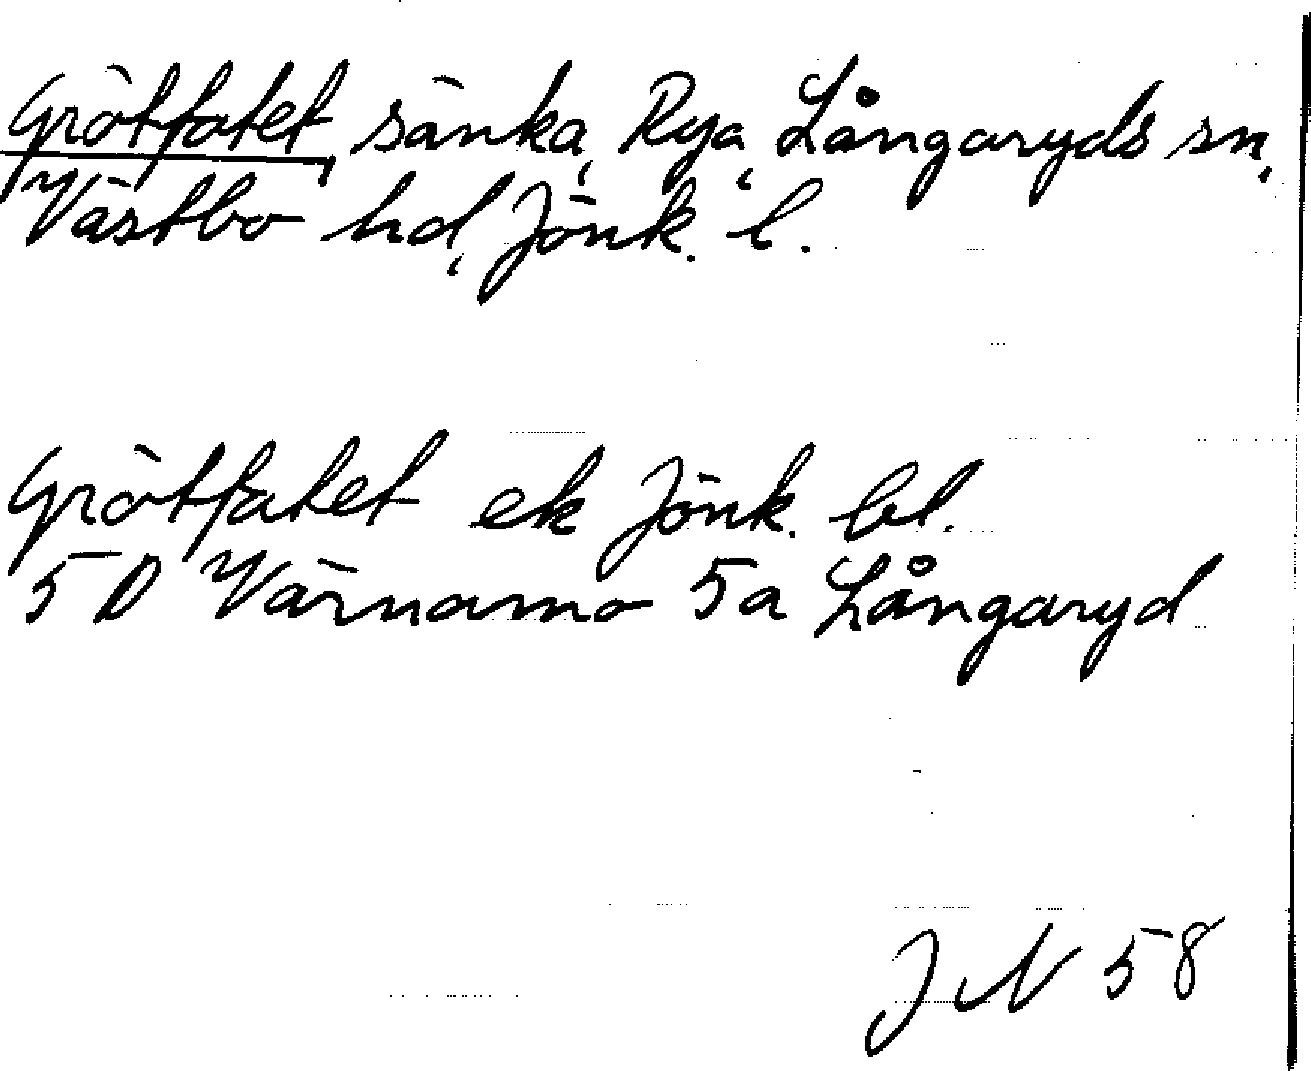 Grötfatet, sänka, Rya, Långaryds sn,
Västbo hd, Jönk. l.
Grötfatet ek Jönk. bl.
5 D Värnamo 5a Långaryd
JN 58